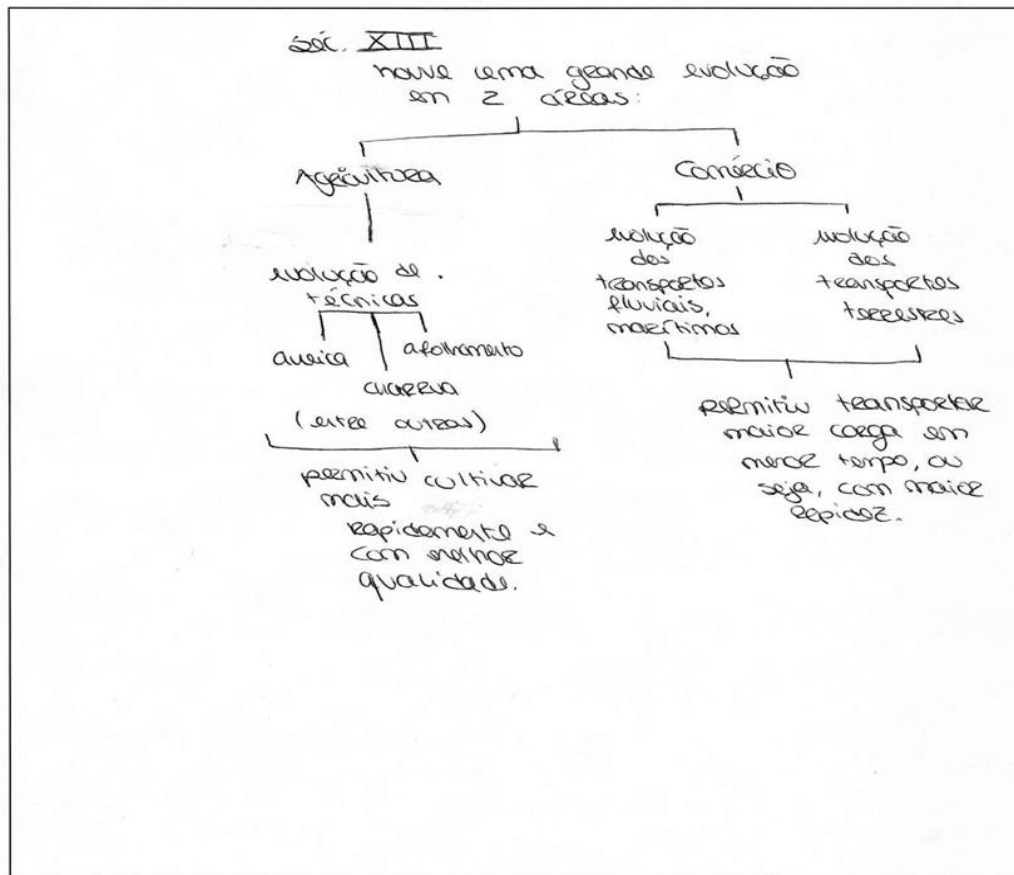 séc. XIII
houve uma grande evolução
em 2 áreas:
Agricultura
evolução de
técnicas
afolhamento
charrua
(entre outras)
permitiu cultivar
mais
rapidamente e
com melhor
qualidade.
Comércio
evolução
dos
transportes
fluviais,
marítimos
evolução
dos
transportes
terrestres
permitiu transportar
maior carga em
menor tempo, ou
seja, com maior
rapidez.